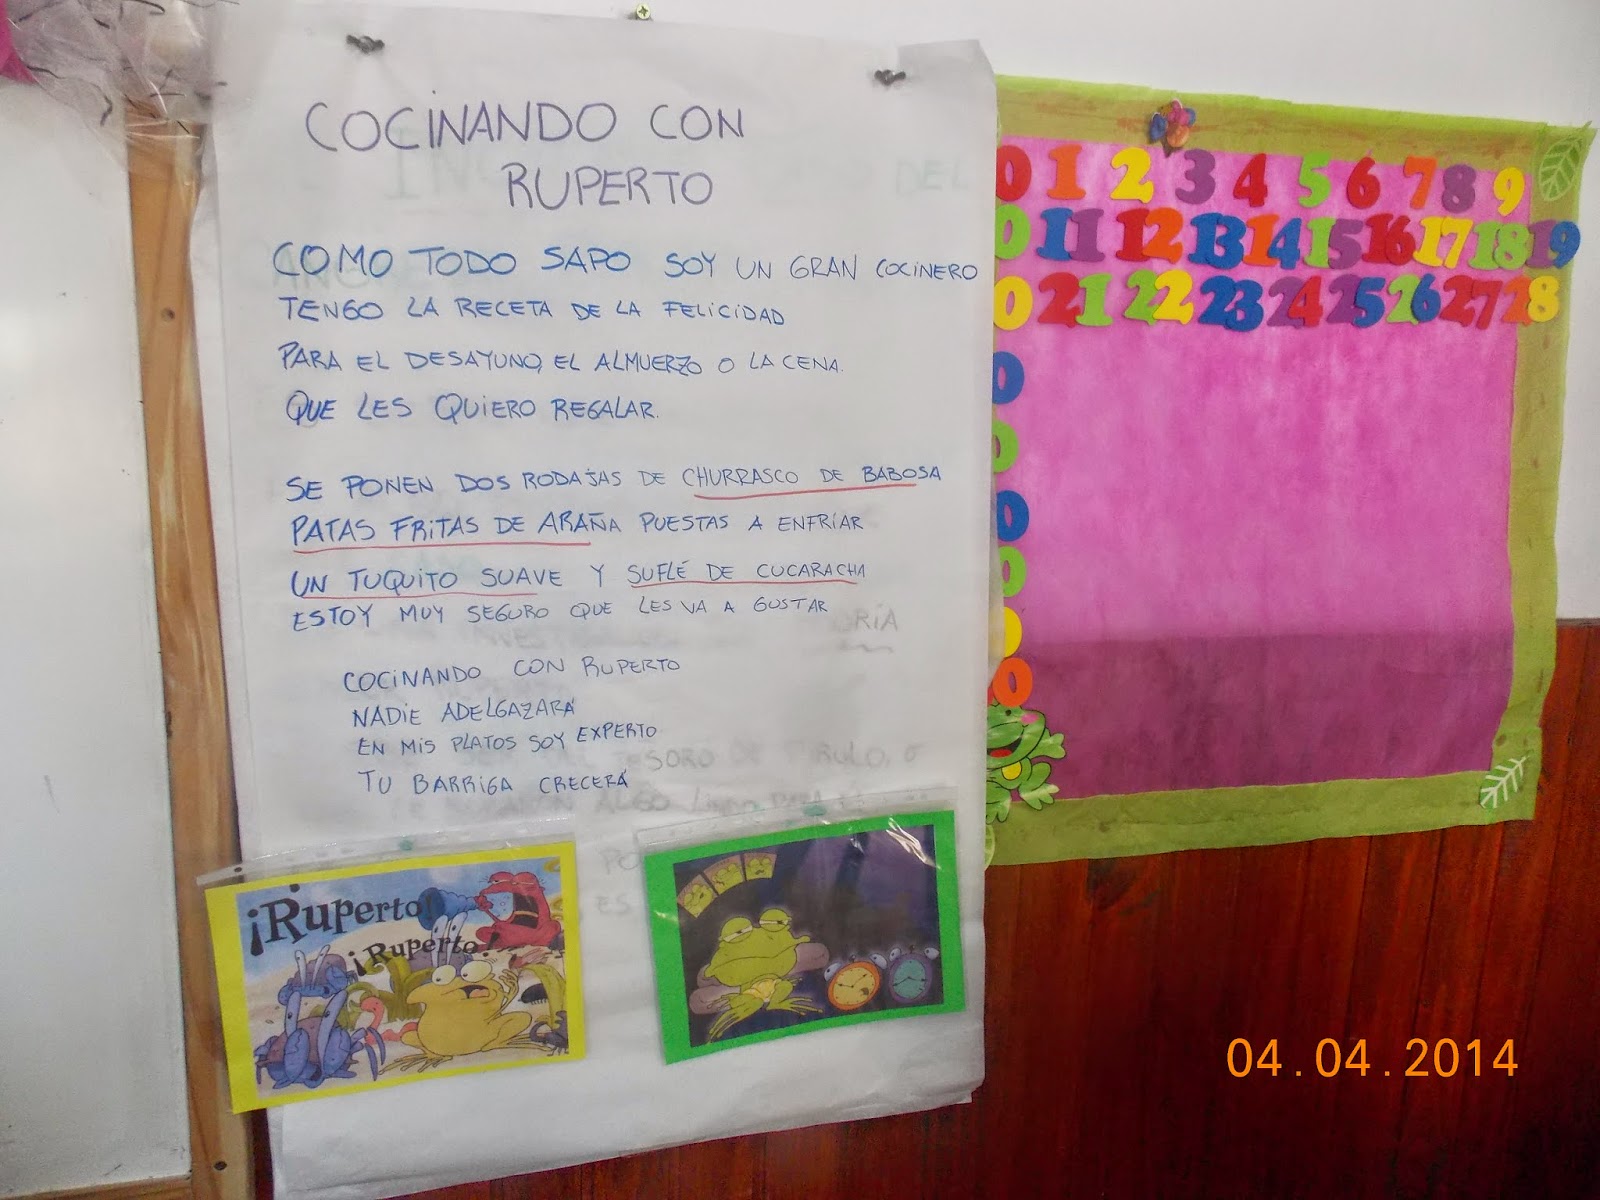 COCINANDO CON
RUPERTO
COMO TODO SAPO SOY UN GRAN COCINERO
TENGO LA RECETA DE LA FELICIDAD
PARA EL DESAYUNO, EL ALMUERZO O LA CENA.
QUE LES QUIERO REGALAR.
SE PONEN DOS RODAJAS DE CHURRASCO DE BABOSA
PATAS FRITAS DE ARAÑA PUESTAS A ENFRIAR
UN TUQUITO SUAVE Y SUFLÉ DE CUCARACHA
ESTOY MUY SEGURO QUE LES VA A GUSTAR
COCINANDO CON RUPERTO
NADIE ADELGAZARÁ
EN MIS PLATOS SOY EXPERTO
TU BARRIGA CRECERÁ
¡Ruperto!
¡Ruperto!
0 1 2 3 4 5 6 7 8 9
0 11 12 13 14 15 16 17 18 19
0 21 22 23 24 25 26 27 28
0
0
0
0
0
0
04.04.2014